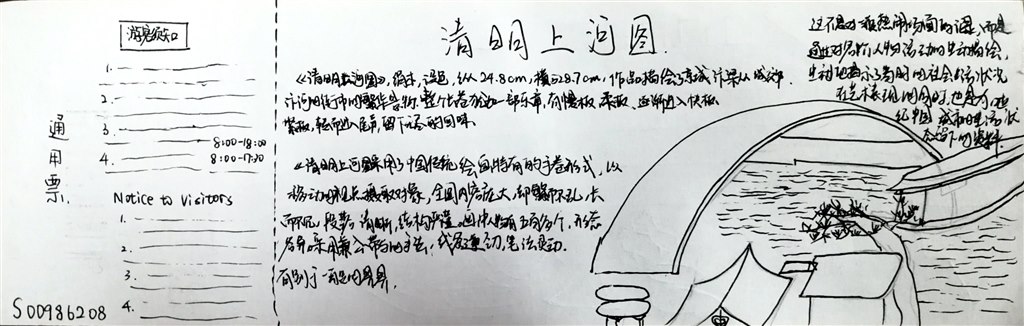 通用票
S00986208
游览须知
1.
2.
3.
8:00-18:00
4.
8:00-17:30
Notice to Visitors
1.
2.
3.
4.
清明上河图
《清明上河图》,绢本,设色,纵24.8cm,横528.7cm,作品描绘了京城汴梁从城郊、
汴河到街市的繁华景物.整个长卷犹如一部乐章,有慢板、柔板、逐渐进入快板
紧板,转而进入尾声,留下无尽的回味.
《清明上河图》采用了中国传统绘画特有的手卷形式,以
移动的视点摄取对象,全图内容庞大,却繁而不乱,长
而不冗,段落清晰,结构严谨.画中人物有五百多个,形态
各异.采用兼工带写的手法,线条遒劲,笔法灵动.
有别于一般的界画.
这不是为了表现热闹场面的
通过对各阶层人物活动的生动描绘,
生动地揭示了当时的社会生活状况
在艺术表现的同时,也是为
中国城市生活状
态留下的资料.